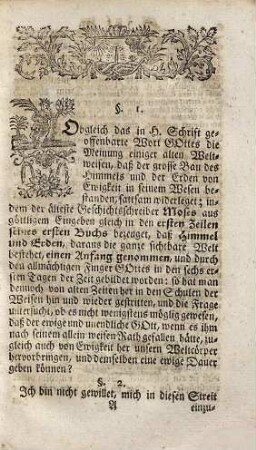 §. 1.
Obgleich das in H. Schrift ge-
offenbarte Wort GOttes die
Meinung einiger alten Welt-
weisen, daß der grosse Bau des
Himmels und der Erden von
Ewigkeit in seinem Wesen be-
standen, sattsam widerleget; in-
dem der älteste Geschichtschreiber Moses aus
göttlichem Eingeben gleich in den ersten Zeilen
seines ersten Buchs bezeuget, daß Himmel
und Erden, daraus die ganze sichtbare Welt
bestehet, einen Anfang genommen, und durch
den allmächtigen Finger GOttes in den sechs er-
sten Tagen der Zeit gebildet worden: so hat man
dennoch von alten Zeiten her in den Schulen der
Weisen hin und wieder gestritten, und die Frage
untersucht, ob es nicht wenigstens möglig gewesen,
daß der ewige und unendliche GOtt, wenn es ihm
nach seinem allein weisen Rath gefallen hätte, zu-
gleich auch von Ewigkeit her unsern Weltcörper
hervorbringen, und demselben eine ewige Dauer
geben können?
§. 2.
Ich bin nicht gewillet, mich in diesen Streit
A einzu-